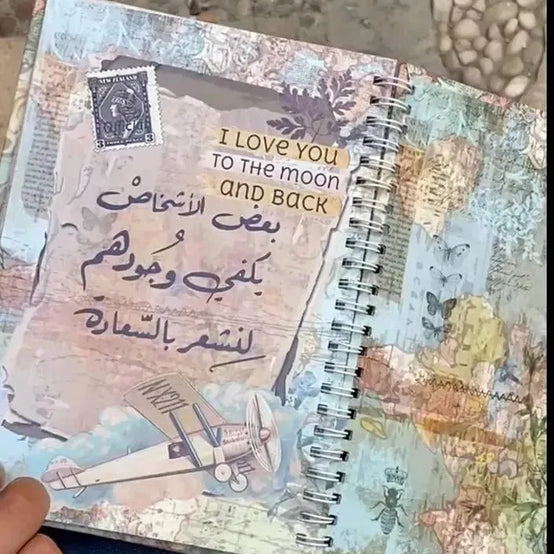 NEW ZEALAND
3 3
I LOVE YOU
TO THE MOON
AND BACK
بعض الأشخاصْ
يكفي وُجودهم
لِنشعر بالسّعادة